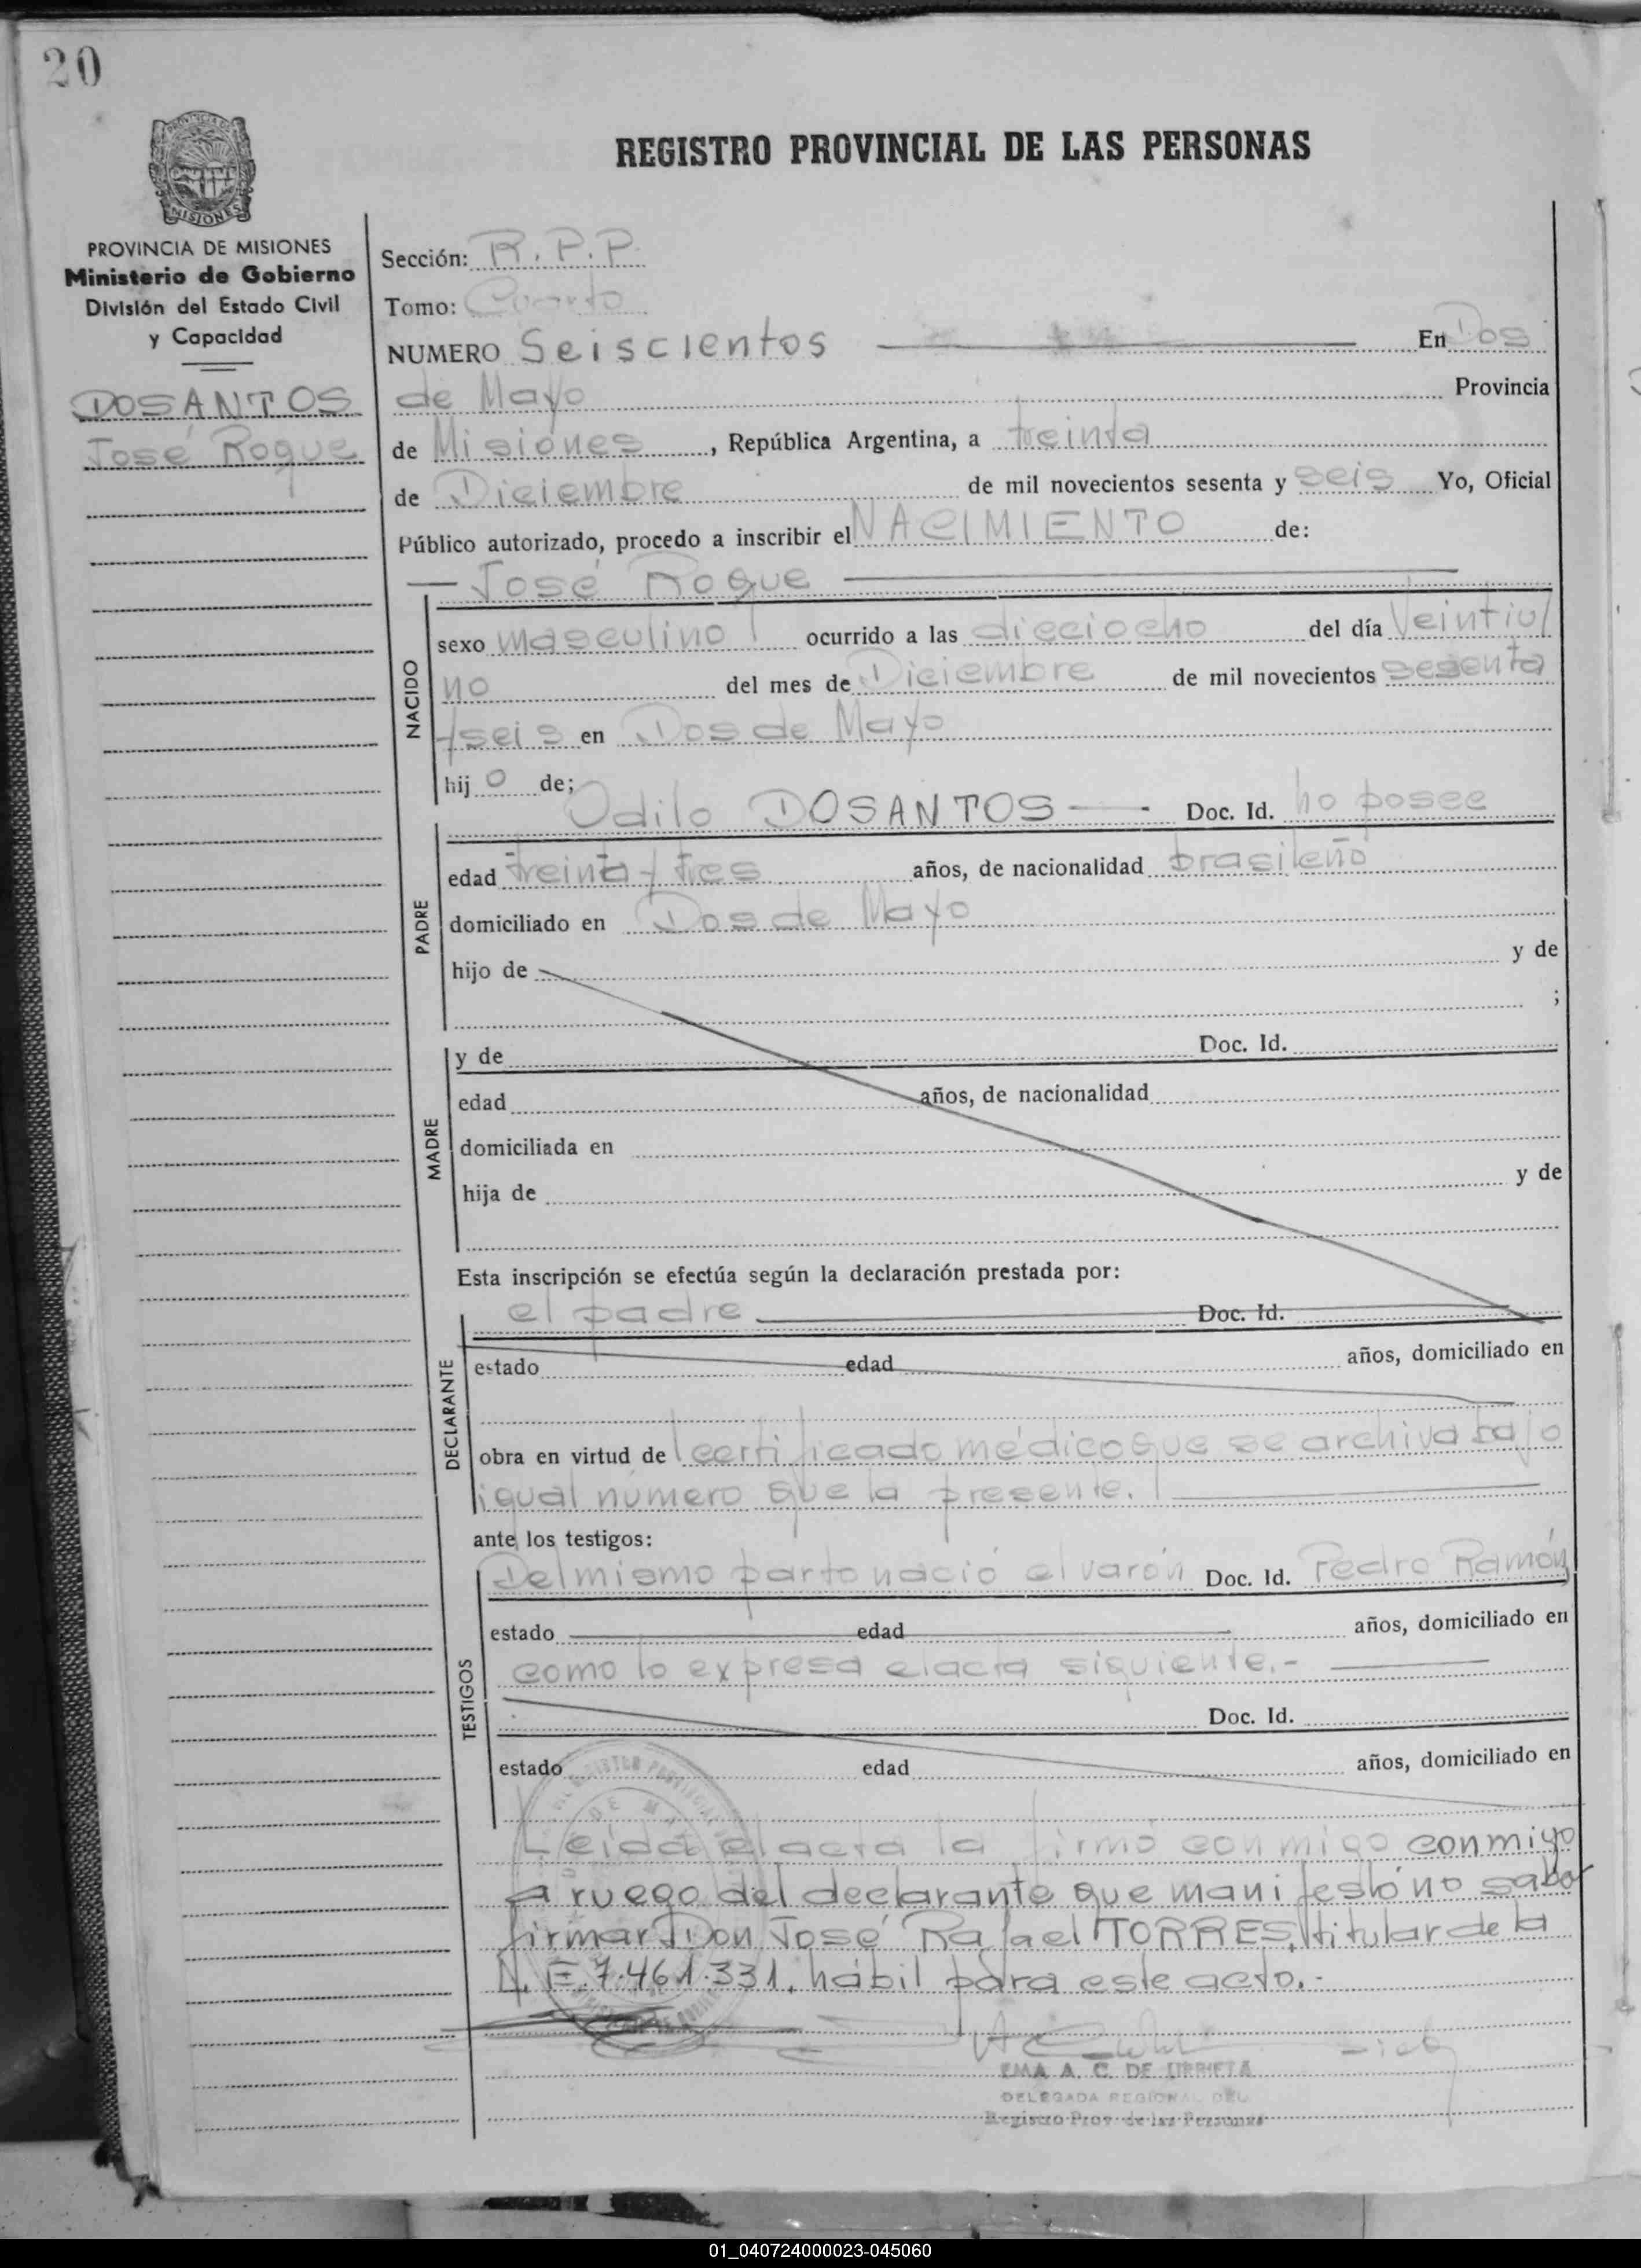 20
REGISTRO PROVINCIAL DE LAS PERSONAS
MISIONES
PROVINCIA DE MISIONES
Ministerio de Gobierno
División del Estado Civil
y Capacidad
DOSANTOS
José Roque
Sección: R. P. P.
Tomo: Cuarto
NUMERO Seiscientos En Dos
de Mayo Provincia
de Misiones, República Argentina, a treinta
de Diciembre de mil novecientos sesenta y seis Yo, Oficial
Público autorizado, procedo a inscribir el NACIMIENTO de:
José Roque
NACIDO
sexo masculino ocurrido a las dieciocho del día Veintiu/
no del mes de Diciembre de mil novecientos sesenta
y seis en Dos de Mayo
hij o de;
PADRE
Odilo DOSANTOS Doc. Id. no posee
edad treinta y tres años, de nacionalidad brasileño
domiciliado en Dos de Mayo
hijo de y de
;
MADRE
y de Doc. Id.
edad años, de nacionalidad
domiciliada en
hija de y de
Esta inscripción se efectúa según la declaración prestada por:
DECLARANTE
el padre Doc. Id.
estado edad años, domiciliado en
obra en virtud de certificado médico que se archiva bajo
igual número que la presente.
ante los testigos:
TESTIGOS
Del mismo parto nació el varón Doc. Id. Pedro Ramón
estado edad años, domiciliado en
como lo expresa el acta siguiente.-
Doc. Id.
estado edad años, domiciliado en
Leida el acta la firmó conmigo conmigo
a ruego del declarante que manifestó no saber
firmar Don José Rafael TORRES, titular de la
L.E. 7.461.331, hábil para este acto.-
EMA A. C. DE URRIETA
DELEGADA REGIONAL DEL
Registro Prov. de las Personas
01_040724000023-045060